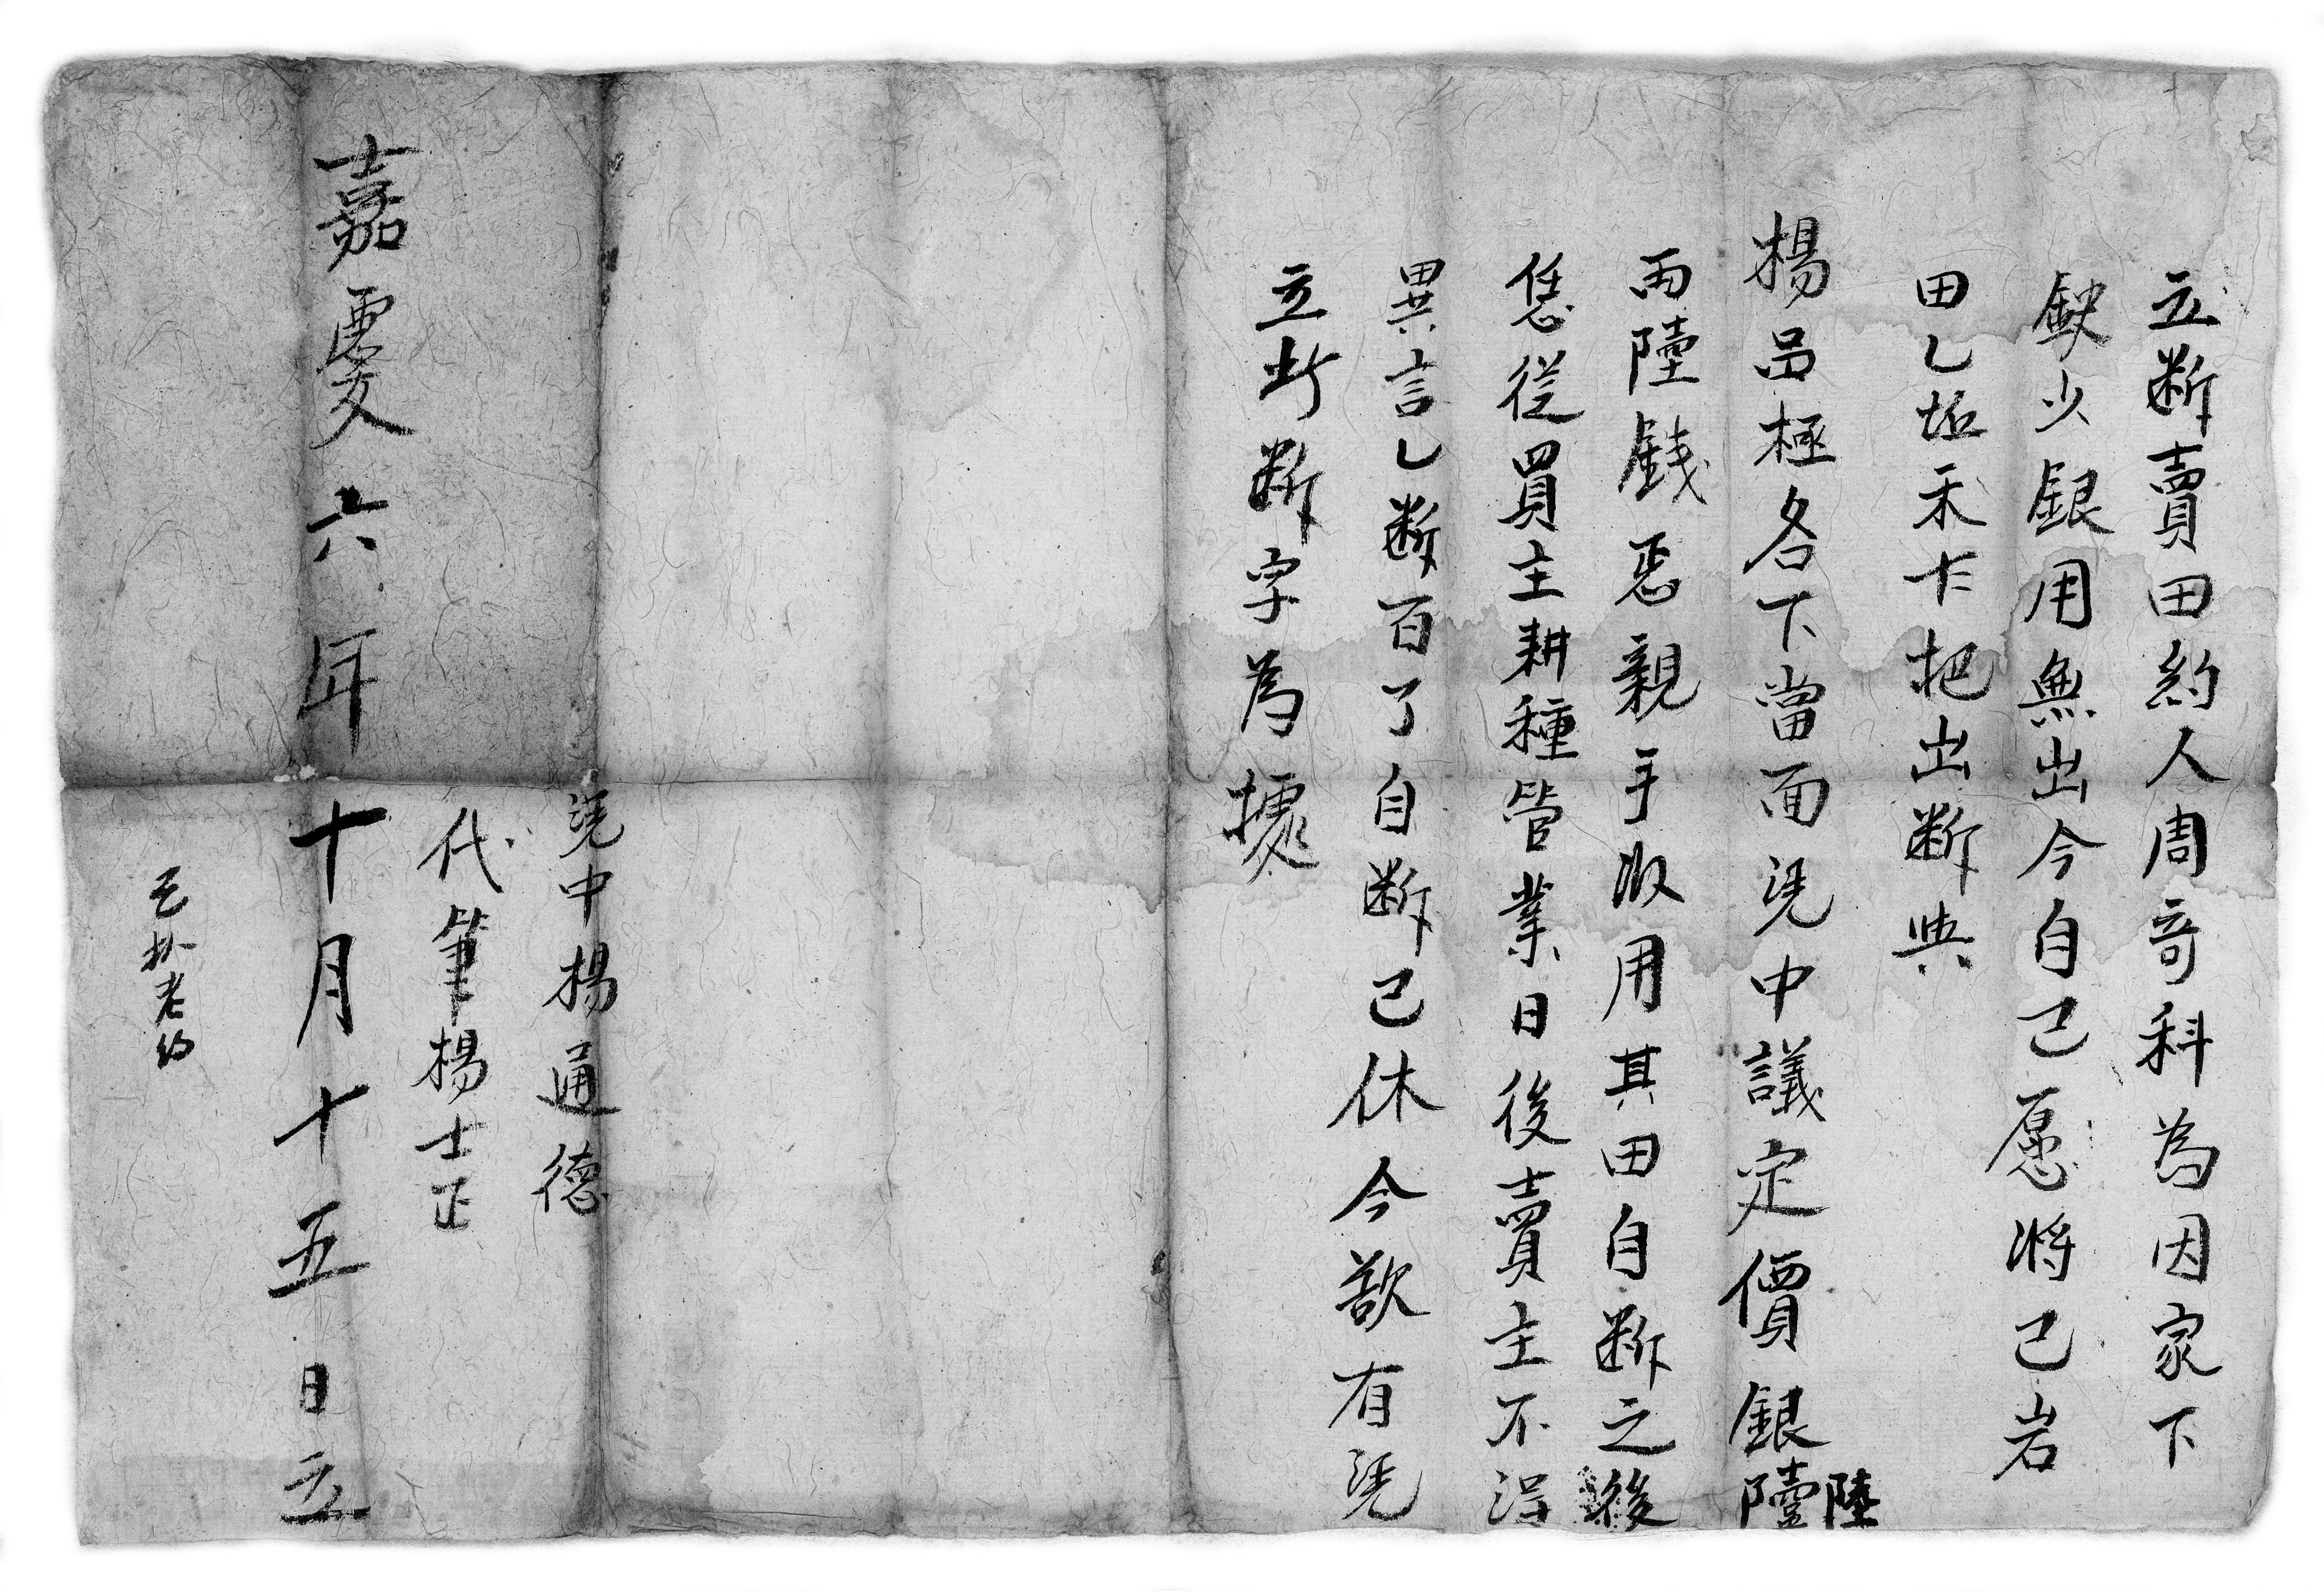 立断賣田約人周奇科為因家下
缺少銀用無出今自己愿將己岩
田乚坵禾卡把出断與
楊品極名下當面凴中議定價銀陸
陸
両陸錢悉親手收用其田自断之後
恁從買主耕種管業日後賣主不淂
異言乚断百了自断已休今欲有凴
立此断字為據
凴中楊通德
代筆楊士正
嘉慶六年十月十五日立
老約